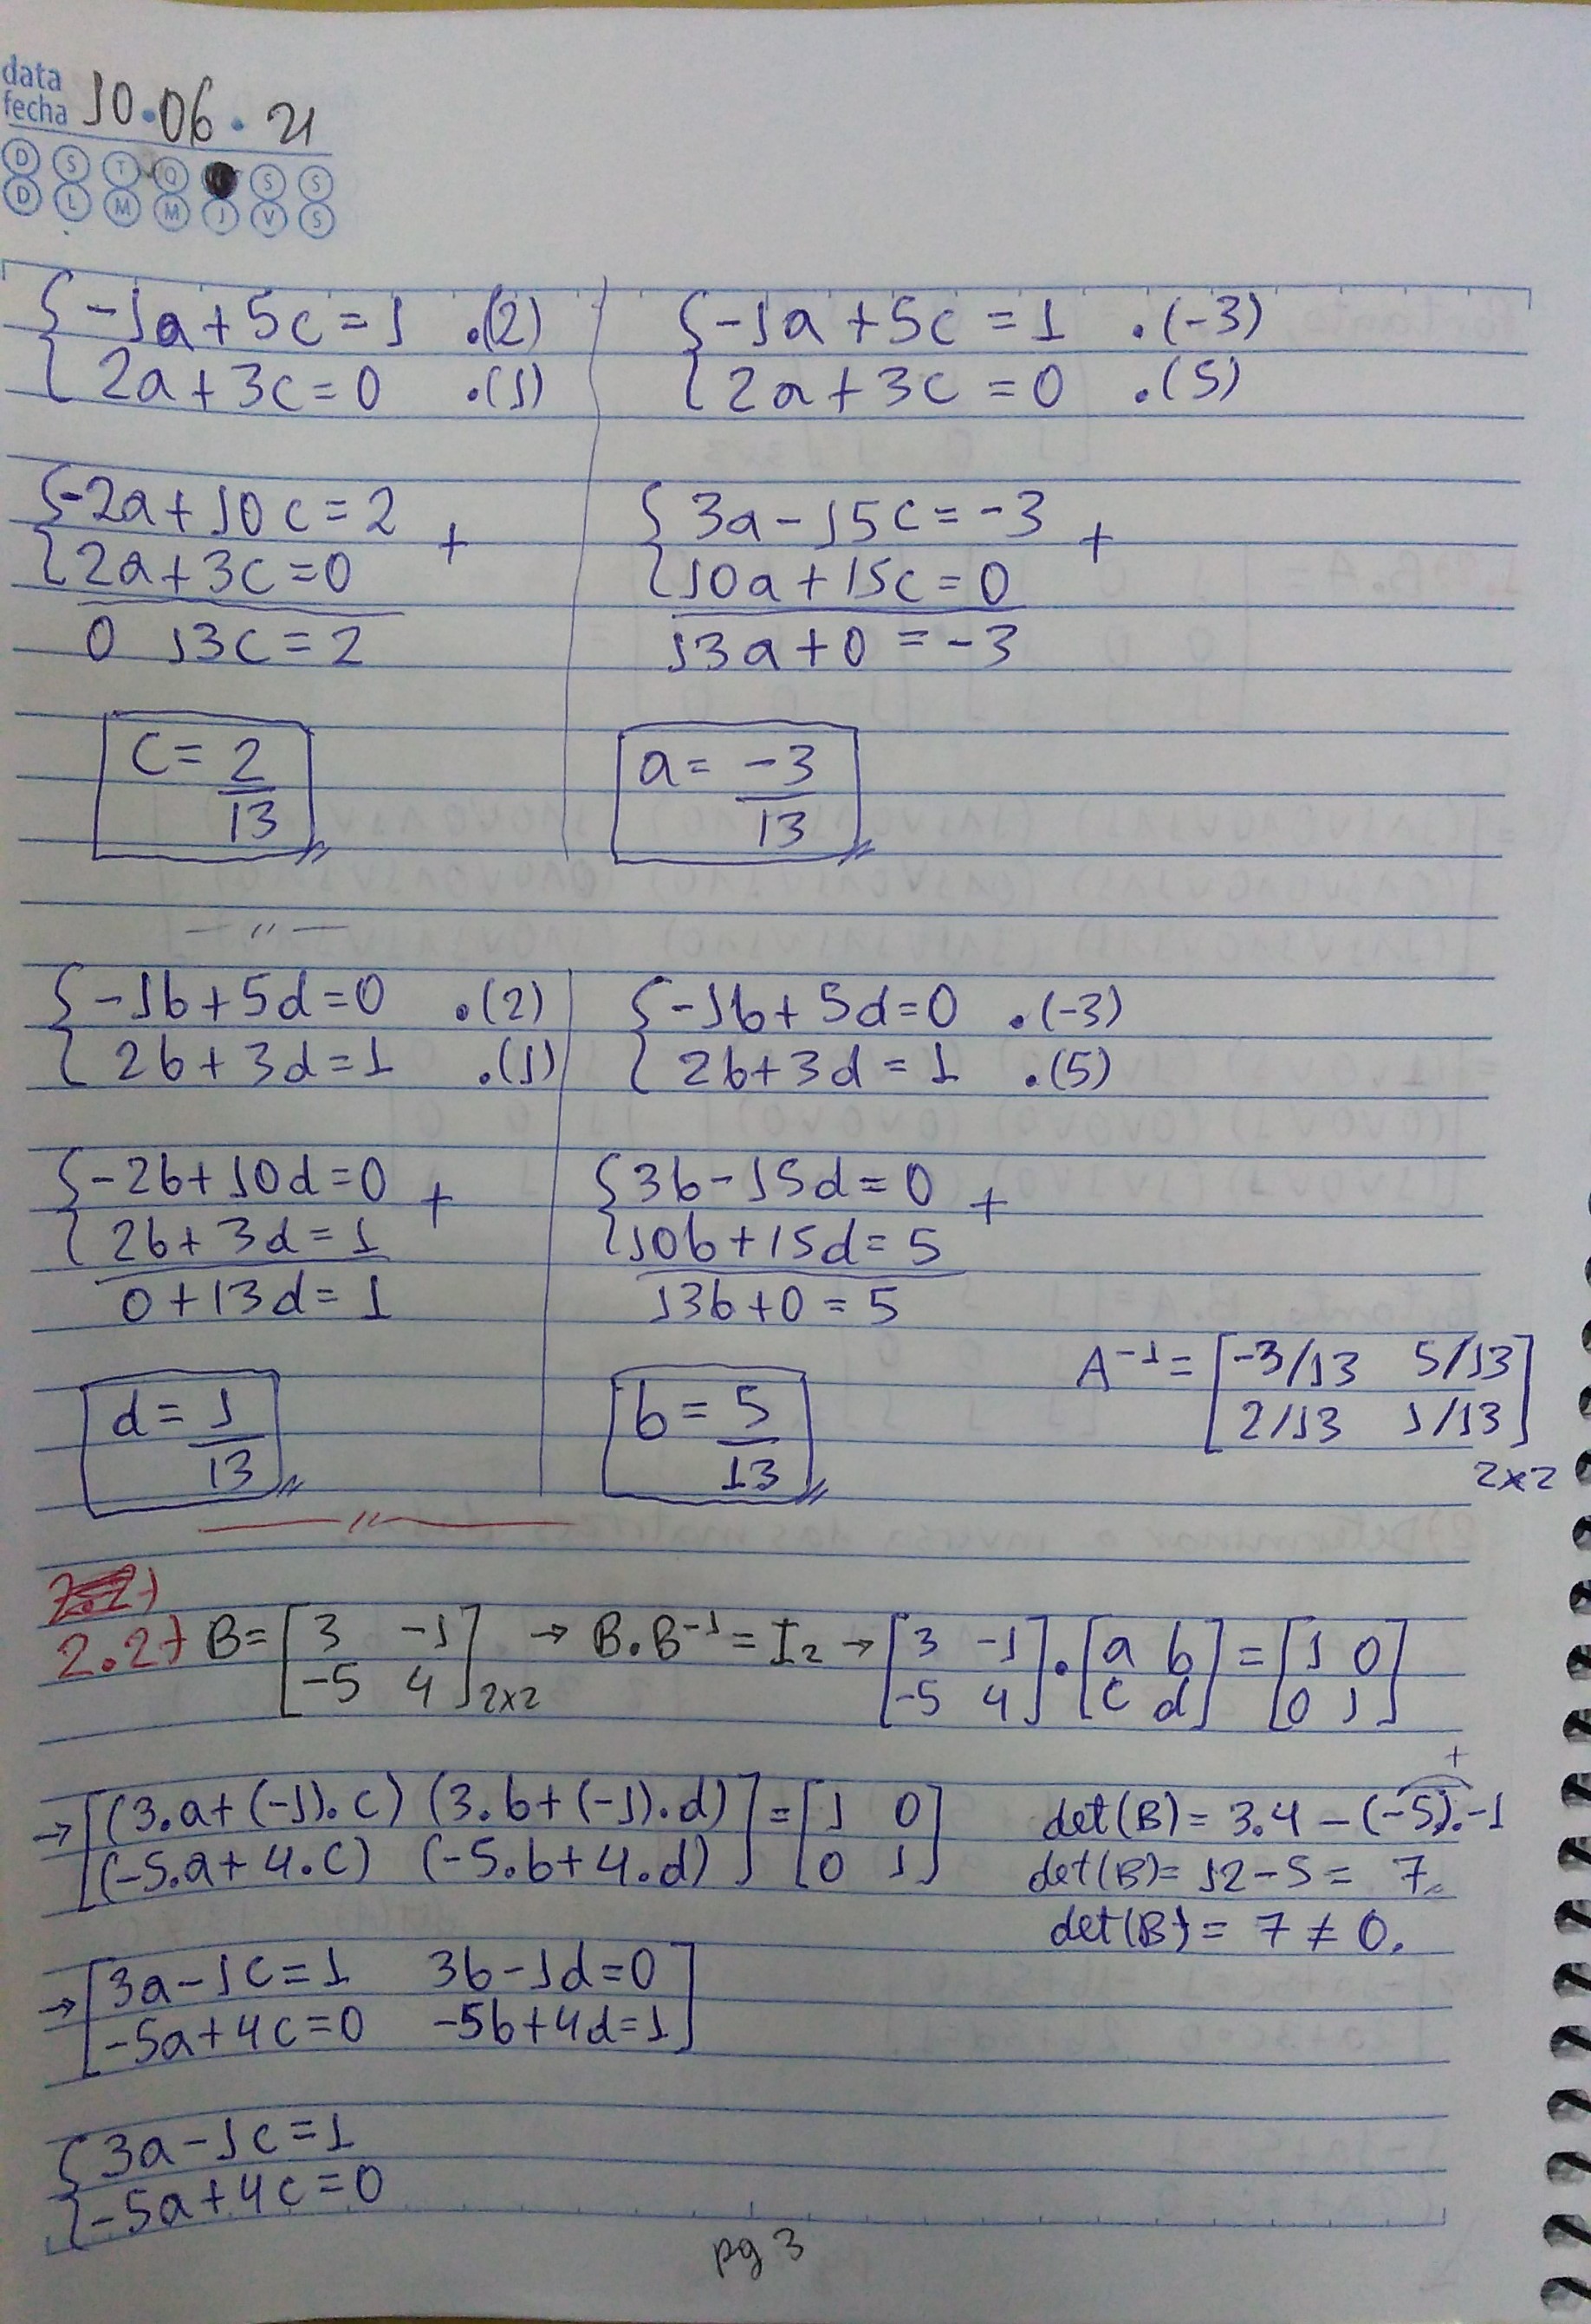 data
fecha 10.06.21
D S T Q S S
D L M M J V S
{-1a+5c=1 .(2)
{2a+3c=0 .(1)
{-1a+5c=1 .(-3)
{2a+3c=0 .(5)
{-2a+10c=2 +
{2a+3c=0
0 13c=2
{3a-15c=-3 +
{10a+15c=0
13a+0=-3
c=2/13
a=-3/13
{-1b+5d=0 .(2)
{2b+3d=1 .(1)
{-1b+5d=0 .(-3)
{2b+3d=1 .(5)
{-2b+10d=0 +
{2b+3d=1
0+13d=1
{3b-15d=0 +
{10b+15d=5
13b+0=5
d=1/13
b=5/13
A⁻¹=[-3/13 5/13
2/13 1/13] 2x2
2.2)
2.2) B=[3 -1
-5 4] 2x2 → B.B⁻¹=I₂ → [3 -1
-5 4].[a b
c d]=[1 0
0 1]
→[(3.a+(-1).c) (3.b+(-1).d)
(-5.a+4.c) (-5.b+4.d)]=[1 0
0 1]
+
det(B)=3.4-(-5).-1
det(B)=12-5=7
det(B)=7≠0.
→[3a-1c=1 3b-1d=0
-5a+4c=0 -5b+4d=1]
{3a-1c=1
{-5a+4c=0
pg 3